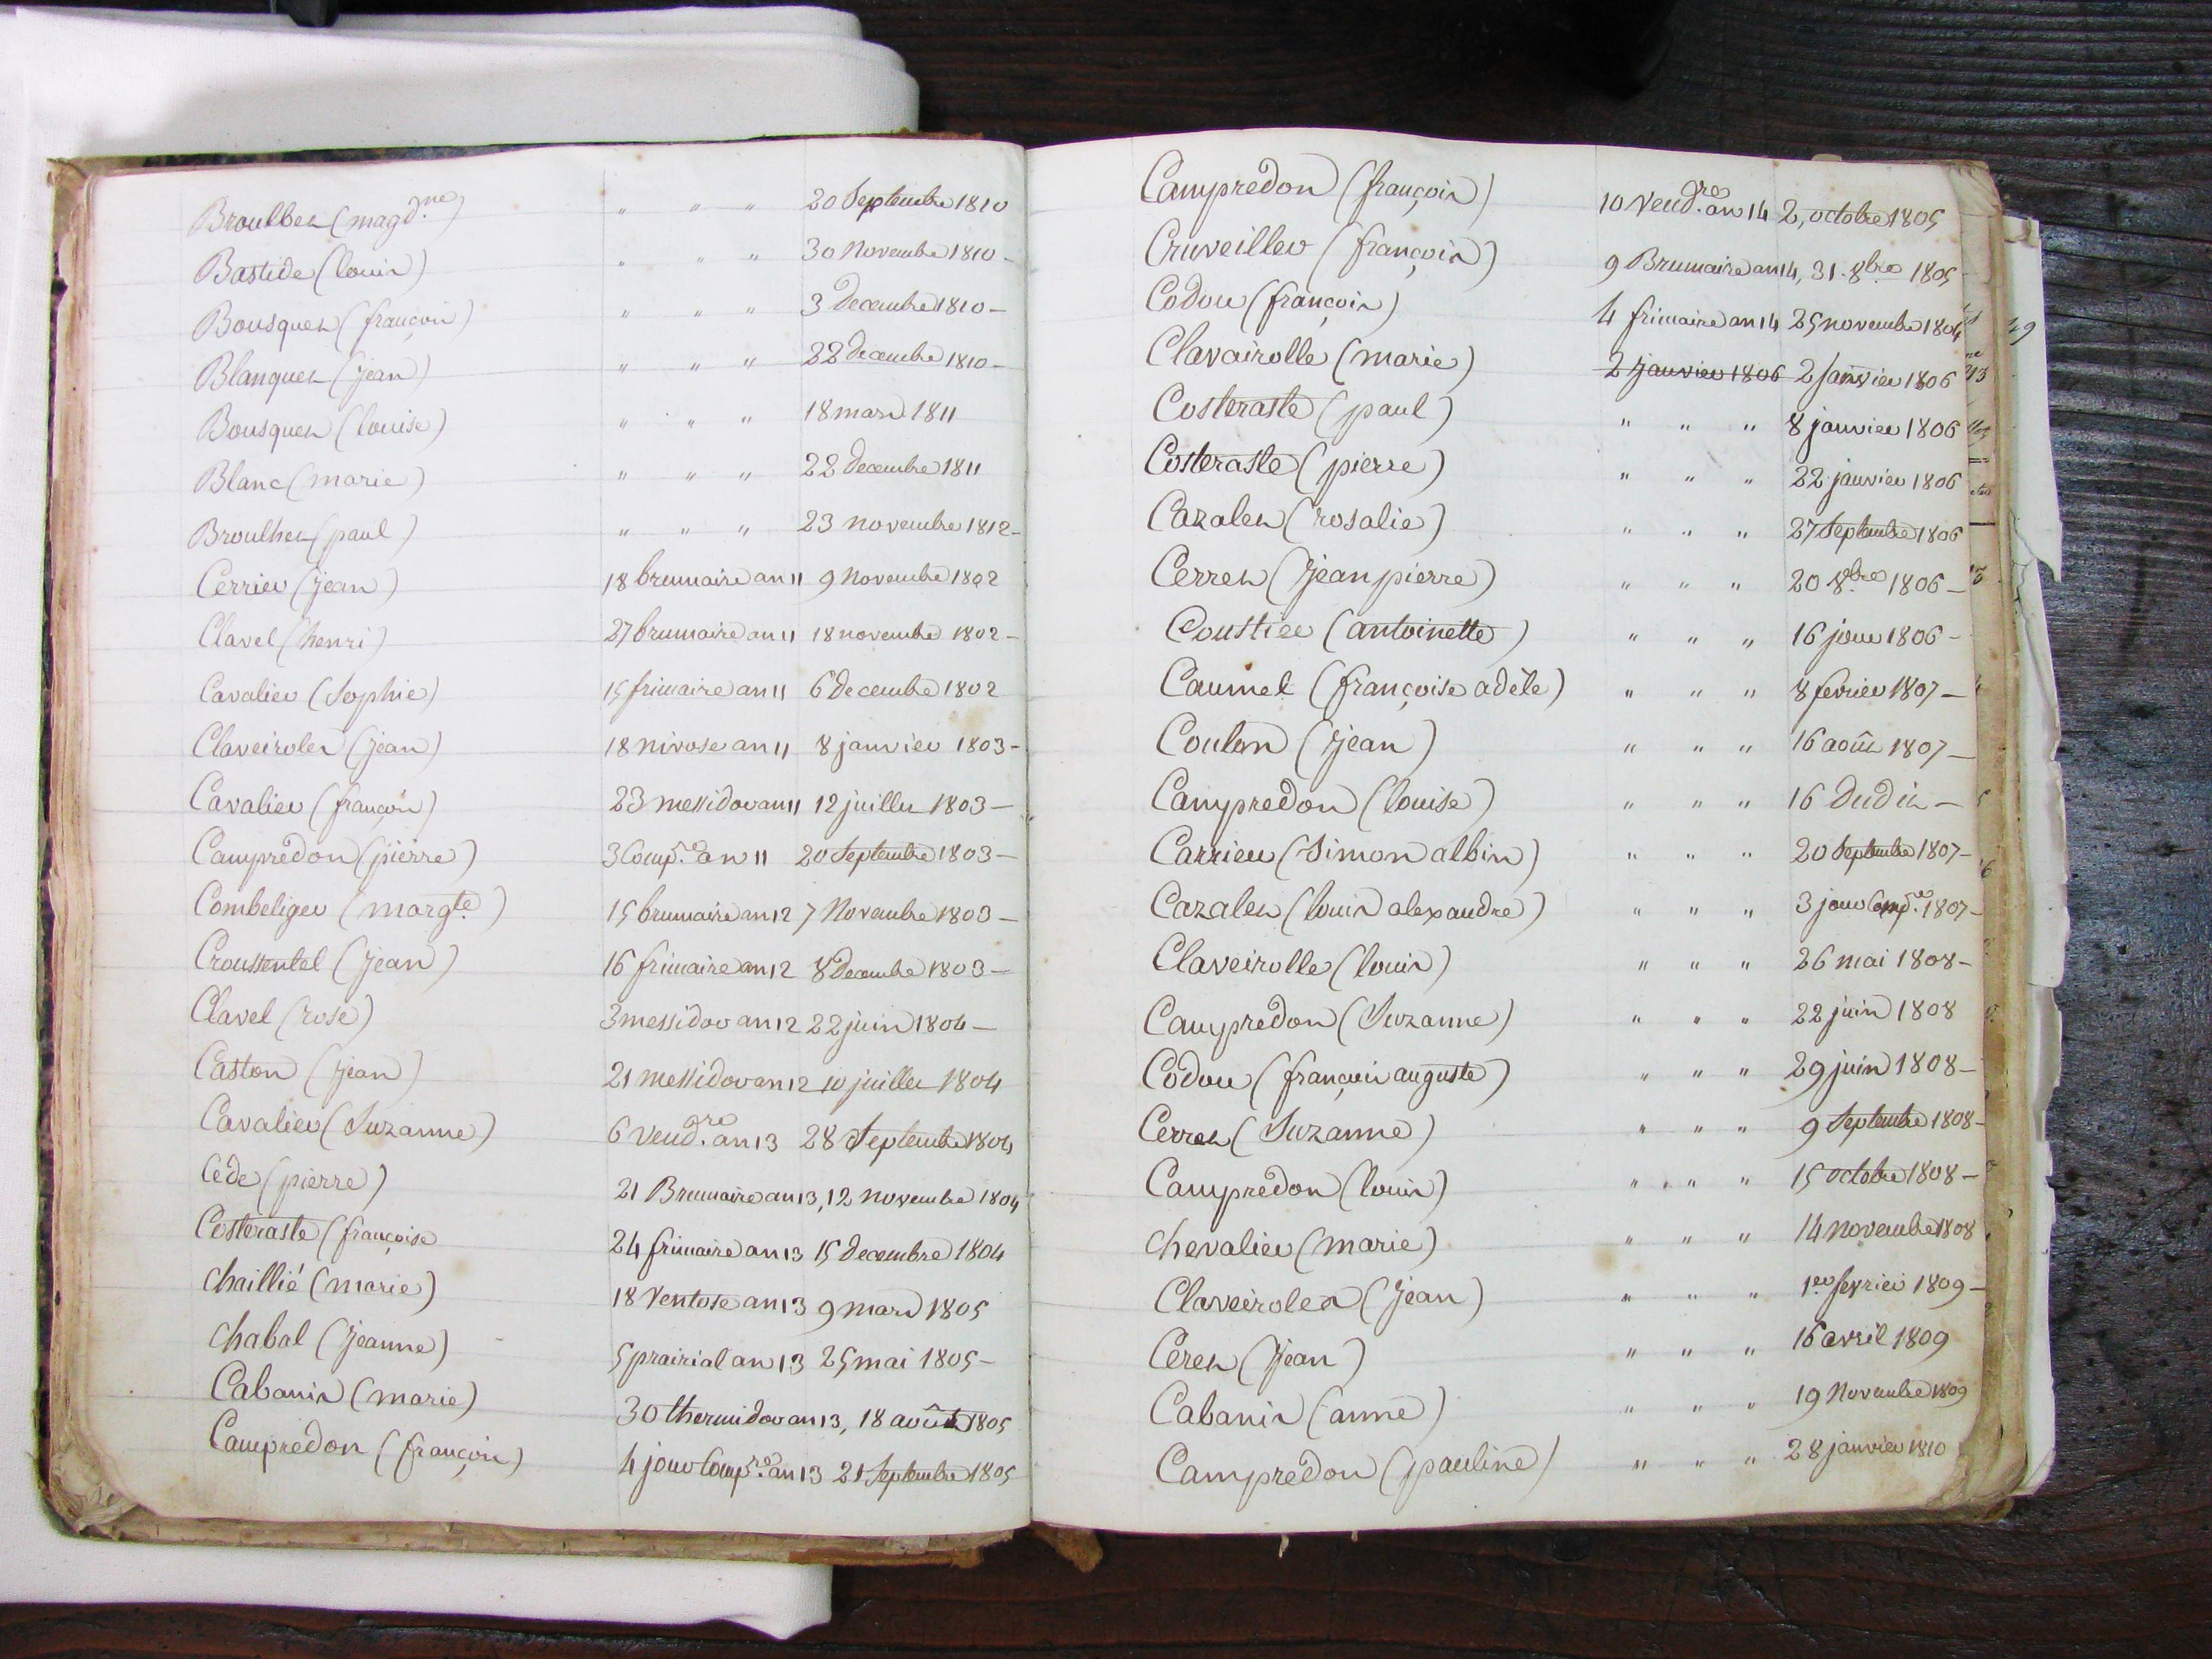 Broulhet (magd.ne) " " " 20 Septembre 1810
Bastide (louis) " " " 30 Novembre 1810 -
Bousquet (françois) " " " 3 decembre 1810 -
Blanquet (jean) " " " 22 decembre 1810 -
Bousquet (louise) " " " 18 mars 1811
Blanc (marie) " " " 22 decembre 1811
Broulhet (paul) " " " 23 novembre 1812 -
Cerrier (jean) 18 brumaire an 11 9 Novembre 1802
Clavel (henri) 27 brumaire an 11 18 novembre 1802 -
Cavalier (Sophie) 15 frimaire an 11 6 decembre 1802
Claveiroles (jean) 18 nivose an 11 8 janvier 1803 -
Cavalier (françois) 23 messidor an 11 12 juillet 1803 -
Campredon (pierre) 3 Comp.re an 11 20 Septembre 1803 -
Combeliger (margte) 15 brumaire an 12 7 Novembre 1803 -
Croussentel (jean) 16 frimaire an 12 8 Decembre 1803 -
Clavel (rose) 3 messidor an 12 22 juin 1804 -
Caston (jean) 21 messidor an 12 10 juillet 1804
Cavalier (Suzanne) 6 vend.re an 13 28 Septembre 1804
Cède (pierre) 21 Brumaire an 13, 12 novembre 1804
Costeraste (françoise 24 frimaire an 13 15 decembre 1804
Chaillié (marie) 18 Ventose an 13 9 mars 1805
Chabal (jeanne) 5 prairial an 13 25 mai 1805 -
Cabanis (marie) 30 thermidor an 13, 18 août 1805
Campredon (françois) 4 jour Comp.re an 13 21 Septembre 1805
Campredon (françois) 10 vend.re an 14 2, octobre 1805
Cruveiller (françois) 9 Brumaire an 14, 31. 8bre 1805
Codou (françois) 4 frimaire an 14 25 novembre 1804
Clavairolle (marie) 2 janvier 1806 2 Janvier 1806
Costeraste (paul) " " " 8 janvier 1806
Costeraste (pierre) " " " 22 janvier 1806
Cazalet (rosalie) " " " 27 Septembre 1806
Cerret (jean pierre) " " " 20 8bre 1806 -
Coustier (antoinette) " " " 16 jour 1806 -
Caumel (françoise adèle) " " " 8 fevrier 1807 -
Coulon (jean) " " " 16 août 1807 -
Campredon (louise) " " " 16 Dudit -
Carrieu (Simon albin) " " " 20 Septembre 1807 -
Cazalet (louis alexandre) " " " 3 jour Comp.re 1807 -
Claveirolle (louis) " " " 26 mai 1808 -
Campredon (Suzanne) " " " 22 juin 1808
Codou (françois auguste) " " " 29 juin 1808 -
Cerret (Suzanne) " " " 9 Septembre 1808 -
Campredon (louis) " " " 15 octobre 1808 -
Chevalier (marie) " " " 14 novembre 1808
Claveiroles (jean) " " " 1er fevrier 1809 -
Ceret (jean) " " " 16 avril 1809
Cabanis (anne) " " " 19 Novembre 1809
Campredon (pauline) " " " 28 janvier 1810